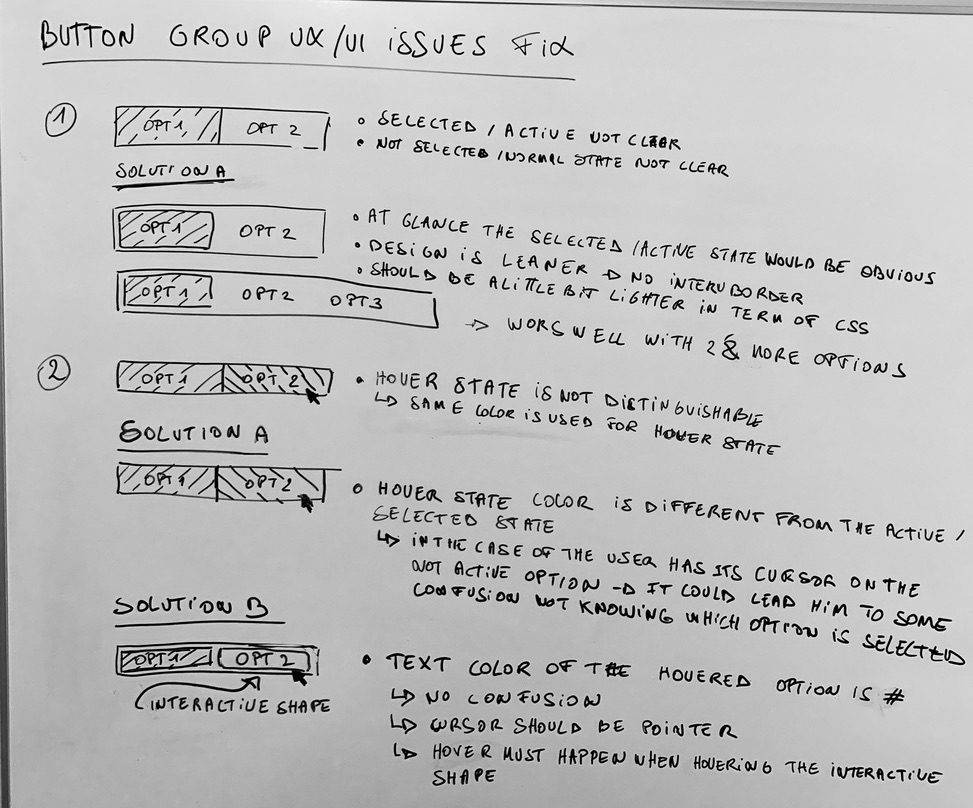 BUTTON GROUP UX/UI ISSUES FIX
1
OPT1 OPT 2
• SELECTED / ACTIVE NOT CLEAR
• NOT SELECTED /NORMAL STATE NOT CLEAR
SOLUTION A
OPT1 OPT 2
• AT GLANCE THE SELECTED /ACTIVE STATE WOULD BE OBVIOUS
• DESIGN IS LEANER → NO INTERUBORDER
• SHOULD BE A LITTLE BIT LIGHTER IN TERM OF CSS
OPT1 OPT2 OPT3
→ WORS WELL WITH 2 & MORE OPTIONS
2
OPT1 OPT 2
• HOVER STATE IS NOT DISTINGUISHABLE
↳ SAME COLOR IS USED FOR HOVER STATE
SOLUTION A
OPT1 OPT2
• HOVER STATE COLOR IS DIFFERENT FROM THE ACTIVE /
SELECTED STATE
↳ IN THE CASE OF THE USER HAS ITS CURSOR ON THE
NOT ACTIVE OPTION → IT COULD LEAD HIM TO SOME
CONFUSION NOT KNOWING WHICH OPTION IS SELECTED
SOLUTION B
OPT1 OPT 2
INTERACTIVE SHAPE
• TEXT COLOR OF THE HOVERED OPTION IS #
↳ NO CONFUSION
↳ CURSOR SHOULD BE POINTER
↳ HOVER MUST HAPPEN WHEN HOVERING THE INTERACTIVE
SHAPE